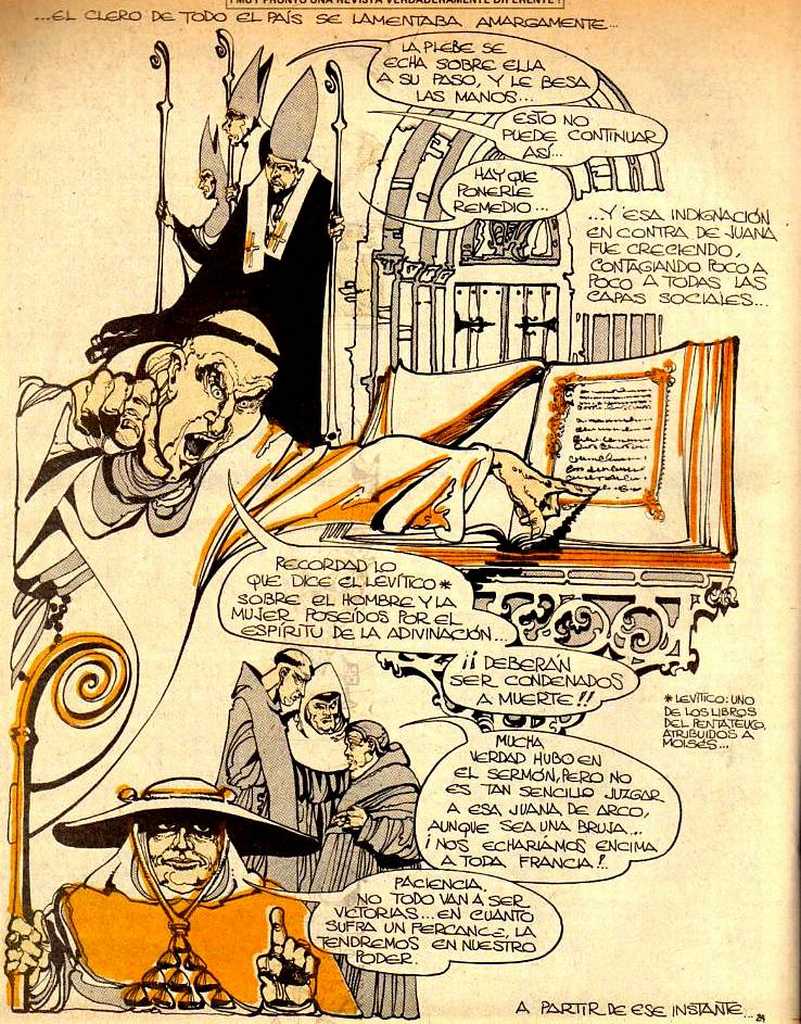 ¡MUY PRONTO UNA REVISTA VERDADERAMENTE DIFERENTE!
...EL CLERO DE TODO EL PAÍS SE LAMENTABA AMARGAMENTE...
LA PLEBE SE
ECHA SOBRE ELLA
A SU PASO, Y LE BESA
LAS MANOS...
ESTO NO
PUEDE CONTINUAR
ASÍ...
HAY QUE
PONERLE
REMEDIO...
...Y ESA INDIGNACIÓN
EN CONTRA DE JUANA
FUE CRECIENDO,
CONTAGIANDO POCO A
POCO A TODAS LAS
CAPAS SOCIALES...
RECORDAD LO
QUE DICE EL LEVÍTICO*
SOBRE EL HOMBRE Y LA
MUJER POSEÍDOS POR EL
ESPÍRITU DE LA ADIVINACIÓN...
¡¡DEBERÁN
SER CONDENADOS
A MUERTE!!
*LEVÍTICO: UNO
DE LOS LIBROS
DEL PENTATEUCO,
ATRIBUIDOS A
MOISÉS...
MUCHA
VERDAD HUBO EN
EL SERMÓN, PERO NO
ES TAN SENCILLO JUZGAR
A ESA JUANA DE ARCO,
AUNQUE SEA UNA BRUJA...
¡NOS ECHARÍAMOS ENCIMA
A TODA FRANCIA!.
PACIENCIA.
NO TODO VAN A SER
VICTORIAS... EN CUANTO
SUFRA UN PERCANCE, LA
TENDREMOS EN NUESTRO
PODER.
A PARTIR DE ESE INSTANTE...